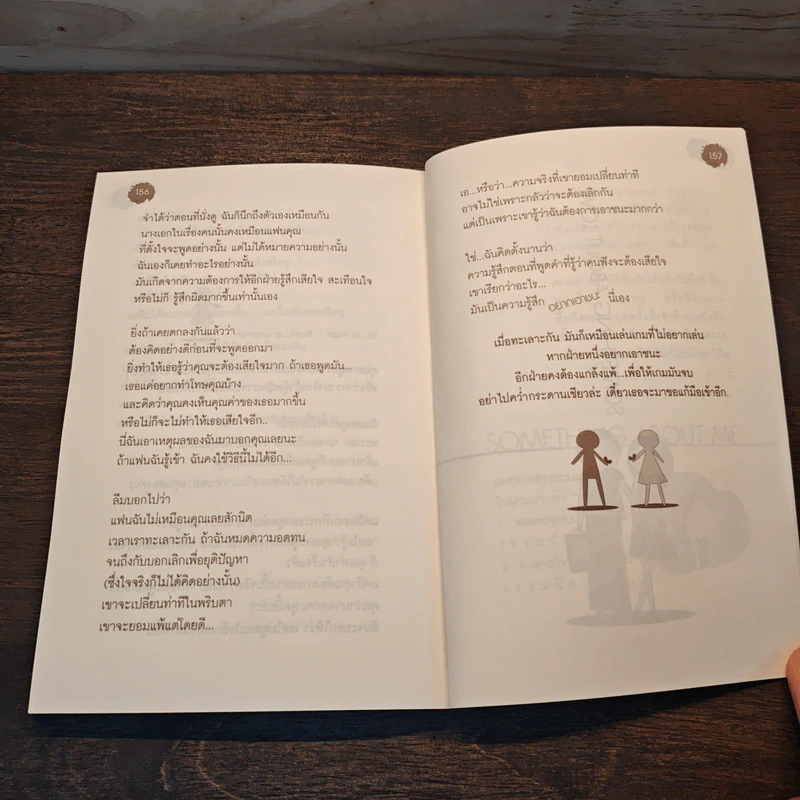 156
จำได้ว่าตอนที่นั่งดู ฉันก็นึกถึงตัวเองเหมือนกัน
นางเอกในเรื่องคนนั้นคงเหมือนแฟนคุณ
ที่ตั้งใจจะพูดอย่างนั้น แต่ไม่ได้หมายความอย่างนั้น
ฉันเองก็เคยทำอะไรอย่างนั้น
มันเกิดจากความต้องการให้อีกฝ่ายรู้สึกเสียใจ สะเทือนใจ
หรือไม่ก็ รู้สึกผิดมากขึ้นเท่านั้นเอง
ยิ่งถ้าเคยตกลงกันแล้วว่า
ต้องคิดอย่างดีก่อนที่จะพูดออกมา
ยิ่งทำให้เธอรู้ว่าคุณจะต้องเสียใจมาก ถ้าเธอพูดมัน...
เธอแค่อยากทำโทษคุณบ้าง
และคิดว่าคุณคงเห็นคุณค่าของเธอมากขึ้น
หรือไม่ก็จะไม่ทำให้เธอเสียใจอีก..
นี่ฉันเอาเหตุผลของฉันมาบอกคุณเลยนะ
ถ้าแฟนฉันรู้เข้า ฉันคงใช้วิธีนี้ไม่ได้อีก...
ลืมบอกไปว่า
แฟนฉันไม่เหมือนคุณเลยสักนิด
เวลาเราทะเลาะกัน ถ้าฉันหมดความอดทน
จนถึงกับบอกเลิกเพื่อยุติปัญหา
(ซึ่งใจจริงก็ไม่ได้คิดอย่างนั้น)
เขาจะเปลี่ยนท่าทีในพริบตา
เขาจะยอมแพ้แต่โดยดี...
157
เอ...หรือว่า...ความจริงที่เขายอมเปลี่ยนท่าที
อาจไม่ใช่เพราะกลัวว่าจะต้องเลิกกัน
แต่เป็นเพราะเขารู้ว่าฉันต้องการเอาชนะมากกว่า
ใช่...ฉันคิดตั้งนานว่า
ความรู้สึกตอนที่พูดคำที่รู้ว่าคนฟังจะต้องเสียใจ
เขาเรียกว่าอะไร...
มันเป็นความรู้สึก อยากเอาชนะ นี่เอง
เมื่อทะเลาะกัน มันก็เหมือนเล่นเกมที่ไม่อยากเล่น
หากฝ่ายหนึ่งอยากเอาชนะ
อีกฝ่ายคงต้องแกล้งแพ้...เพื่อให้เกมมันจบ
อย่าไปคว่ำกระดานเชียวล่ะ เดี๋ยวเธอจะมาขอแก้มือเข้าอีก.